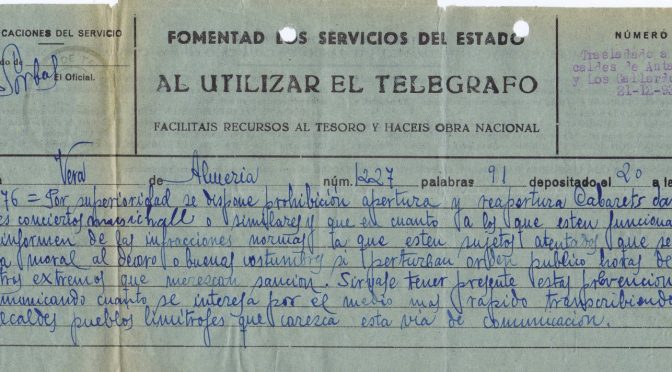 CACIONES DEL SERVICIO
FOMENTAD LOS SERVICIOS DEL ESTADO
NÚMERO
do de
El Oficial.
AL UTILIZAR EL TELEGRAFO
Trasladado a
caldes de Anta
y Los Gallardo
21-12-93
FACILITAIS RECURSOS AL TESORO Y HACEIS OBRA NACIONAL
Vera de Almeria núm. 1227 palabras 91 depositado el 20 a las
76 = Por superioridad se dispone prohibición apertura y reapertura Cabarets da
es conciertos musichall o similares y que en cuanto a los que esten funciona
informen de las infracciones normas a que esten sujetos atentados que se
a moral al decoro o buenas costumbres si perturban orden publico horas de
tros extremos que merezcan sancion. Sirvase tener presente estas prevencion
municando cuanto se interesa por el medio mas rapido transcribiendo
lcaldes pueblos limitrofes que carezca esta via de comunicacion.